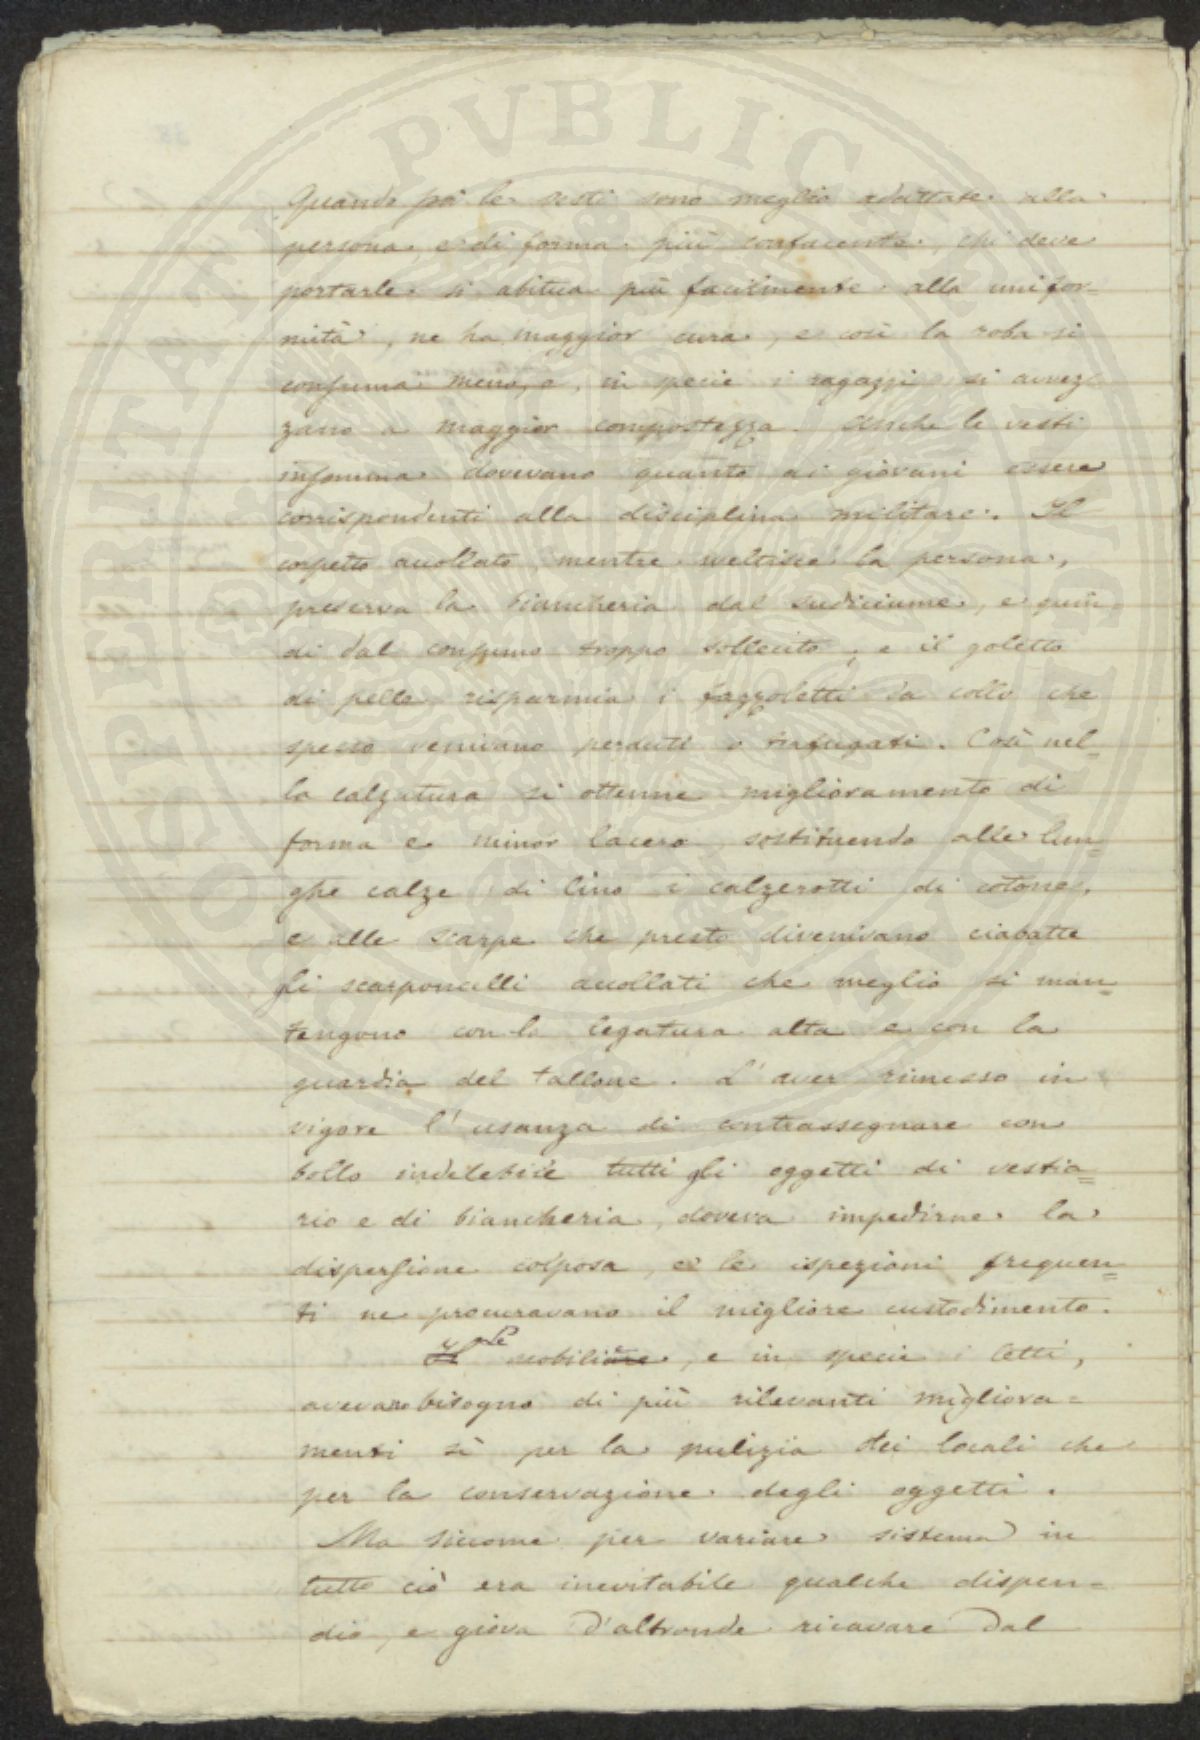 Quando poi le vesti sono meglio adattate alla
persona, e di forma più confacente, chi deve
portarle si abitua più facilmente alla unifor-
mità, ne ha maggior cura, e così la roba si
consuma meno, e, in specie i ragazzi si avvez-
zano a maggior compostezza. Anche le vesti
insomma dovevano quanto ai giovani essere
corrispondenti alla disciplina militare. Il
corpetto accollato mentre sveltisce la persona,
preserva la biancheria dal sudiciume, e quin-
di dal consumo troppo sollecito; e il goletto
di pelle risparmia i fazzoletti da collo che
spesso venivano perduti o trafugati. Così nel=
la calzatura si ottenne miglioramento di
forma e minor lacero, sostituendo alle lun=
ghe calze di lino i calzerotti di cotone,
e alle scarpe che presto divenivano ciabatte
gli scarponcelli accollati che meglio si man=
tengono con la legatura alta e con la
guardia del tallone. L'aver rimesso in
vigore l'usanza di contrassegnare con
bollo indelebile tutti gli oggetti di vestia=
rio e di biancheria, doveva impedirne la
dispersione colposa, e le ispezioni frequen=
ti ne procuravano il migliore custodimento.
Il Le mobiliare, e in specie i letti,
avevano bisogno di più rilevanti migliora=
menti sì per la pulizia dei locali che
per la conservazione degli oggetti.
Ma siccome per variare sistema in
tutto ciò era inevitabile qualche dispen=
dio, e giova d'altronde ricavare dal
PROSPERITATI PVBLICAE